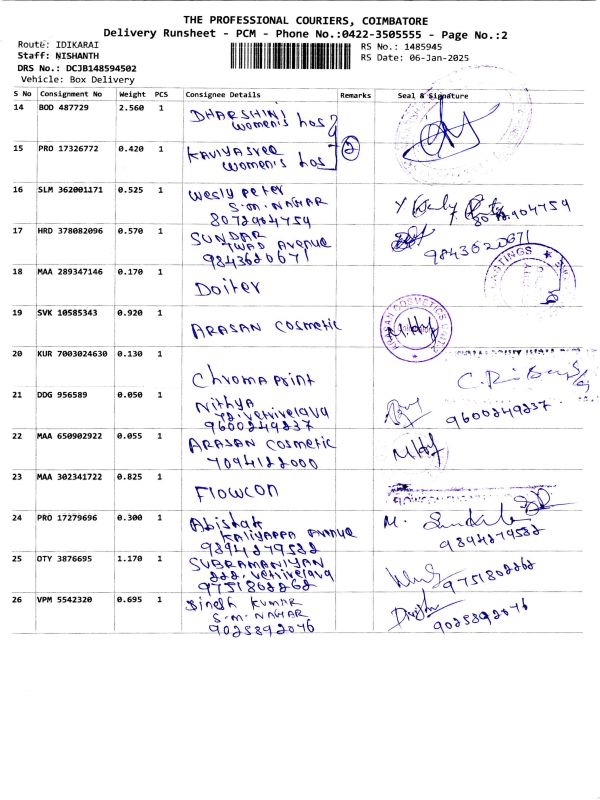 THE PROFESSIONAL COURIERS, COIMBATORE
Delivery Runsheet - PCM - Phone No.:0422-3505555 - Page No.:2
Route: IDIKARAI
RS No.: 1485945
Staff: NISHANTH
RS Date: 06-Jan-2025
DRS No.: DCJB148594502
Vehicle: Box Delivery
S No Consignment No Weight PCS Consignee Details Remarks Seal & Signature
14 BOD 487729 2.560 1 DHARSHINI
women's hos
15 PRO 17326772 0.420 1 KAVIYASREE 2
women's hos
16 SLM 362001171 0.525 1 Wesly Peter
S.M. NAGAR
8072904759 8072904759
17 HRD 378082096 0.570 1 SUNDAR
TWAD Avenue
9843620671 9843620671
18 MAA 289347146 0.170 1 Doiter
19 SVK 10585343 0.920 1 ARASAN COSMETIC
20 KUR 7003024630 0.130 1 Chromaprint
21 DDG 956589 0.050 1 Nithya
72, Vetrivelava
9600249237 9600249237
22 MAA 650902922 0.055 1 ARASAN COSMETIC
7094122000
23 MAA 302341722 0.825 1 FLOWCON
24 PRO 17279696 0.300 1 Abishak
KALIYAPPA Avenue
9894279582 9894279582
25 OTY 3876695 1.170 1 SUBRAMANIYAN
222, Vetrivelava
9751802262 9751802262
26 VPM 5542320 0.695 1 Dinesh Kumar
S.M. NAGAR
9025892076 9025892076